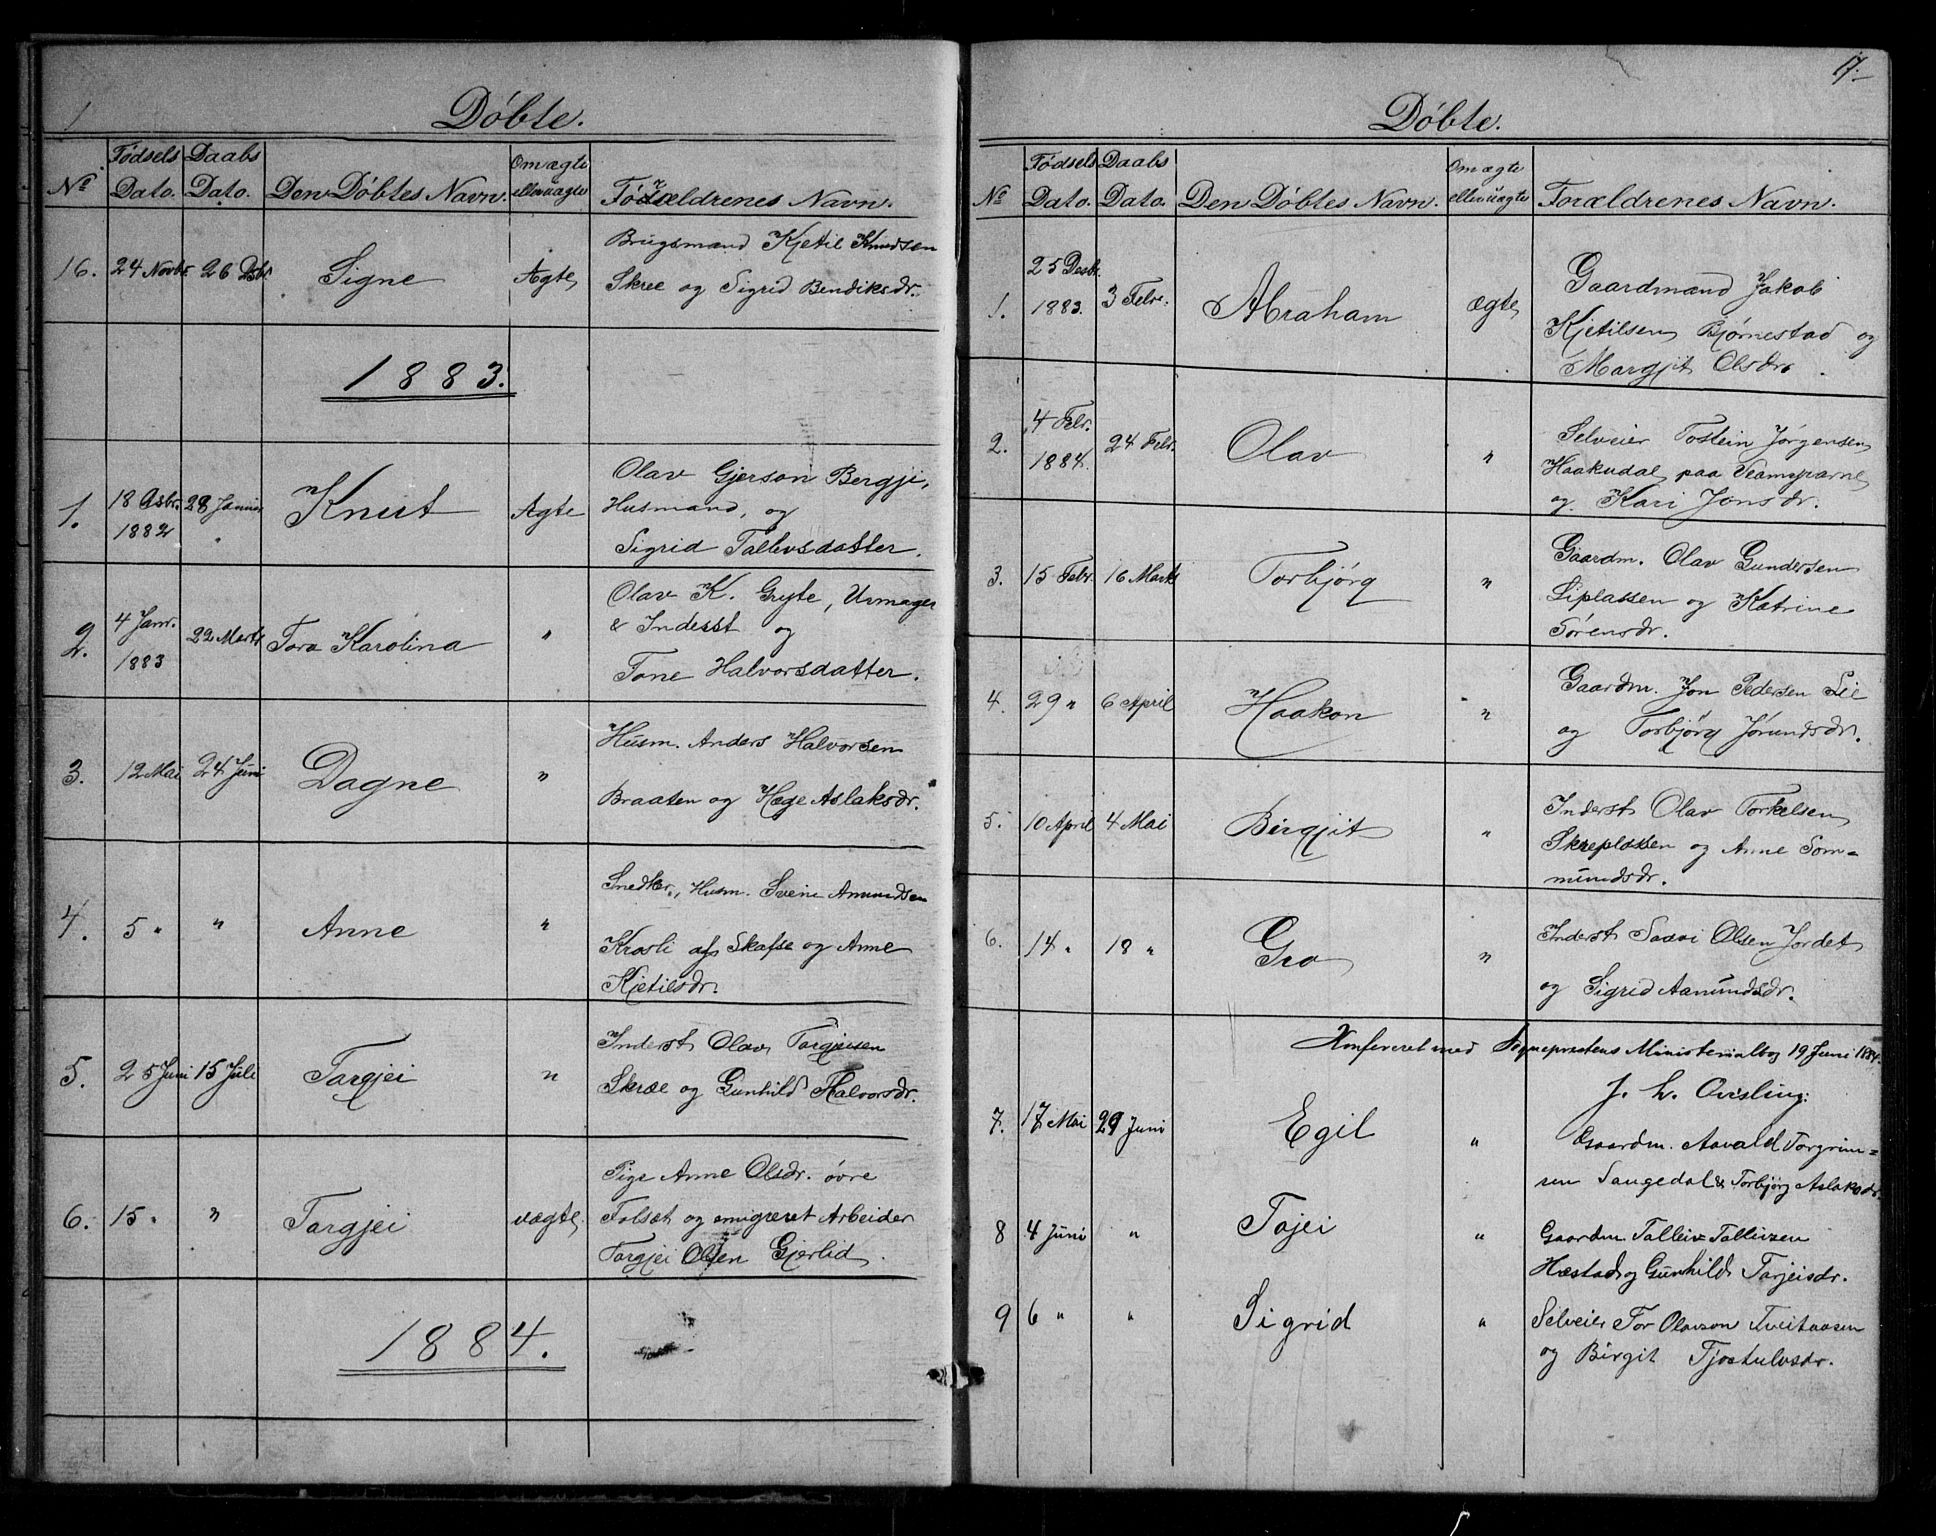 Døbte.
No Fødsels Dato. Daabs Dato. Den Døbtes Navn. Om ægte eller uægte Forældrenes Navn.
16. 24 Novbr. 26 Dsbr. Signe Ægte Brugsmand Kjetil Knudsen
Skree og Sigrid Bendiksdr.
1883.
1. 18 Dsbr. 1882 28 Januar Knut Ægte Olav Gjerson Bergji,
Husmand, og
Sigrid Tallevsdatter.
2. 4 Janr. 1883 22 Marts Tora Karolina " Olav K. Gryte, Urmager
& Inderst og
Tone Halvorsdatter.
3. 12 Mai 24 Juni Dagne " Husm. Anders Halvorsen
Braaten og Hæge Aslaksdr.
4. 5 " " Anne " Snedker, Husm. Svein Amundsen
Krosli af Skafse og Anne
Kjetilsdr.
5. 25 Juni 15 Juli Targjei " Inderst Olav Targjeisen
Skree og Gunhild Halvorsdr.
6. 15 " " Targjei uægte Pige Anne Olsdr. øvre
Falsæt og emigreret Arbeider
Targjei Olsen Gjerlid.
1884.
17.
Døbte.
No Fødsels Dato. Daabs Dato. Den Døbtes Navn. Om ægte eller uægte Forældrenes Navn.
1. 25 Desbr. 1883. 3 Febr. Abraham ægte Gaardmand Jakob
Kjetilsen Bjørnestad og
Margjit Olsdr.
2. 4 Febr. 1884. 24 Febr. Olav " Selveier Tostein Jørgensen
Haakudal paa
og Kari Jonsdr.
3. 15 Febr. 16 Marts Torbjørg " Gaardm. Olav Gundersen
Liplassen og Katrine
Sørensdr.
4. 29 " 6 April Haakon " Gaardm. Jon Pedersen Lie
og Torbjørg Jørundsdr.
5. 10 April 4 Mai Birgjit " Inderst Olav Torkelsen
Skreplassen og Anne Som=
mundsdr.
6. 14 " 18 " Gro " Inderst Saavi Olsen Jordet
og Sigrid Aamundsdr.
Konfereret med Sognepræstens Ministerialbog 19 Juni 1884.
J. L. Qvisling.
7. 17 Mai 29 Juni Egil " Gaardm. Aavald Torgrim=
sen Saugedal & Torbjørg Aslaksdr.
8 4 Juni " Tajei " Gaardm. Talleiv Talleivsen
Hæstad og Gunhild Tarjeisdr.
9 6 " " Sigrid " Selveier Tor Olavson Tveitaasen
og Birgit Tjostulvsdr.